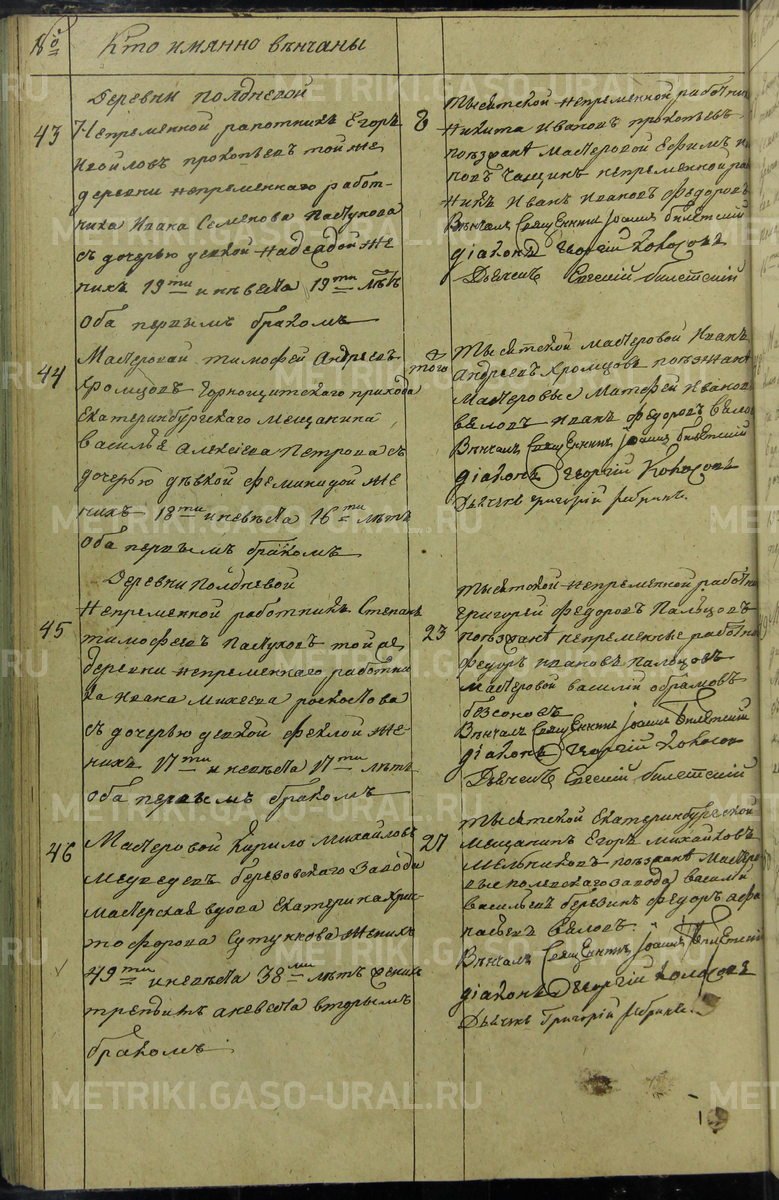 № Кто имянно вѣнчаны
Деревни Полдневой
43 Непременной работникъ Егоръ
Ивойловъ Прокопьевъ той же
деревни непременнаго работ-
ника Ивана Семенова Пастухова
съ дочерью девкой Надеждой же
нихъ 19ти и невѣста 19ти лѣтъ
оба первымъ бракомъ
8
Тысяткой непременной работни
Никита Ивановъ Прокопьевъ
поѣзжане мастеровой Ефимъ
повъ Чащинъ непременной ра
никъ Иванъ Ивановъ Федоровъ
Вѣнчалъ Священникъ Іоаннъ Билетскій
діаконъ Георгій Колосовъ
Дьячекъ Евгеній Билетскій
44 Мастеровой Тимофей Андреевъ
Хромцовъ Горнощитскаго прихода
Екатеринбургскаго мещанина
Василья Алексѣева Петрова съ
дочерью дѣвкой Феманидой же
нихъ 18ти и невѣста 16ти лѣтъ
оба первымъ бракомъ
того
Тысятской мастеровой Иванъ
Андреевъ Хромцовъ поѣзжане
мастеровые Матфей Иванов
Бѣловъ Иванъ Федоровъ Бѣлов
Вѣнчалъ Священникъ Іоаннъ Билетскій
діаконъ Георгій Колосовъ
Дьячекъ Григорій Рябринъ.
Деревни Полдневой
45 Непременной работникъ Степанъ
Тимофеевъ Пастуховъ той же
деревни непременнаго работни
ка Ивана Михеева
съ дочерью девкой Феклой же
нихъ 17ти и невѣста 17ти лѣтъ
оба первымъ бракомъ
23
Тысятской непременной работни
Григорей Федоровъ Пальцовъ
поѣзжане непременные работни
Федоръ Ивановъ Пальцовъ
мастеровой Василій Обрамовъ
Безсоновъ
Вѣнчалъ Священникъ Іоаннъ Билетскій
діаконъ Георгій Колосов
Дьячекъ Евгеній Билетскій
46 Мастеровой Кирило Михайловъ
Медведевъ Березовскаго завода
мастерская вдова Екатерина Хрис-
тофорова Сутункова женихъ
49ти и невѣста 38ми лѣтъ жених
третьимъ а невеста вторымъ
бракомъ.
27
Тысятской Екатеринбургской
мещанинъ Егоръ Михайловъ
Мельниковъ поѣзжане мастеро
вые Полевскаго завода Василій
Васильевъ Березинъ Федоръ Афа
насьевъ Бѣловъ.
Вѣнчалъ Священникъ Іоаннъ Билетскій
діаконъ Георгій Колосовъ
Дьячекъ Григорій Рябринъ.
METRIKI.GASO-URAL.RU